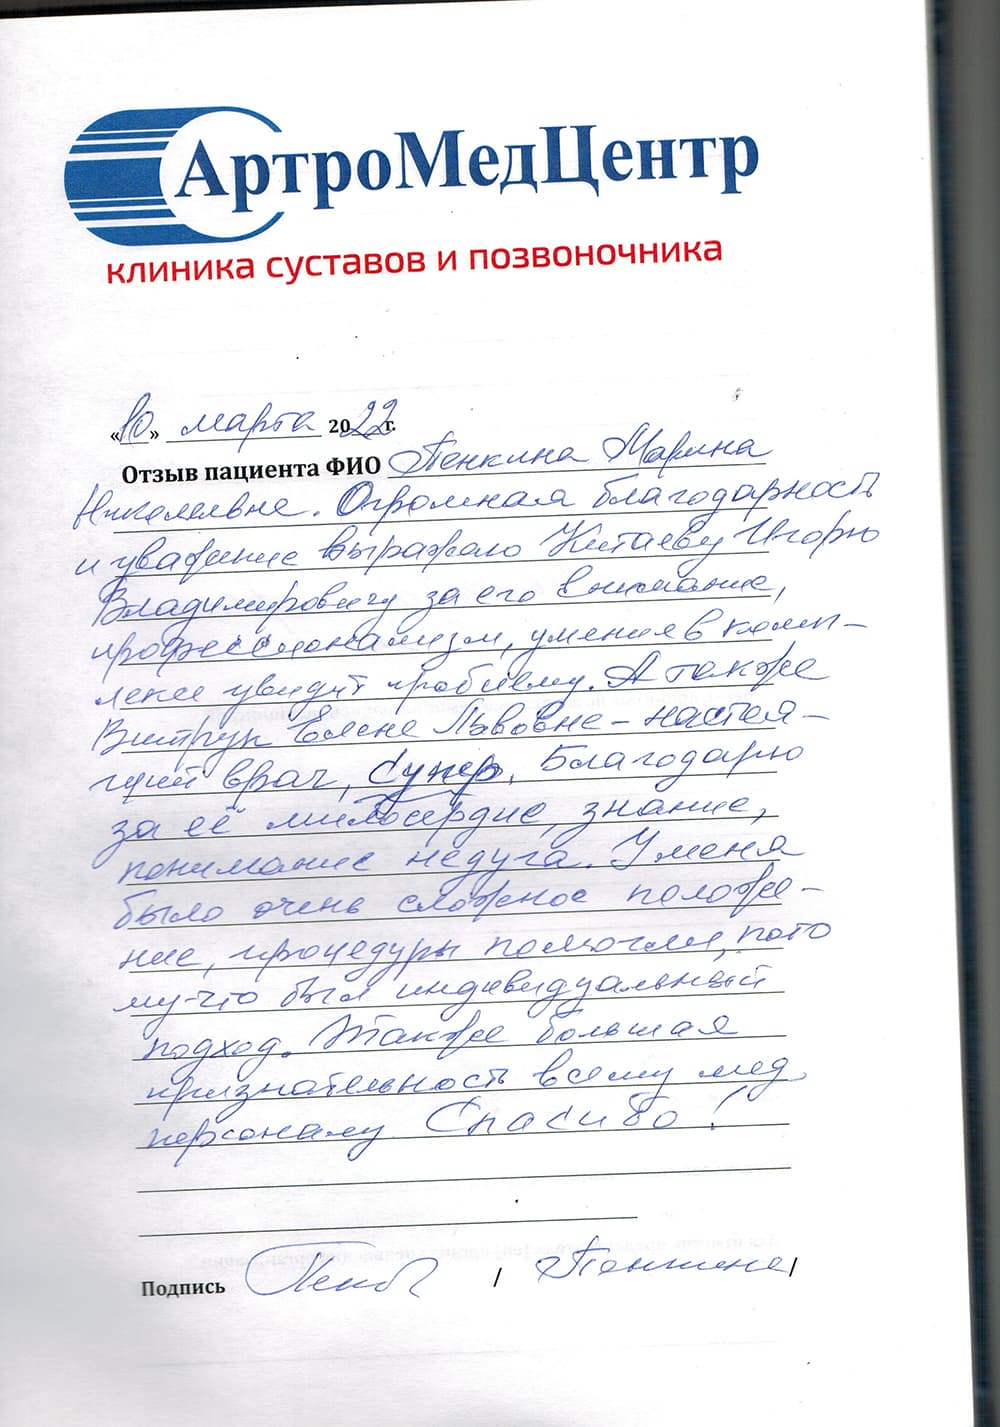 АртроМедЦентр
клиника суставов и позвоночника
«10» марта 2022г.
Отзыв пациента ФИО Пенкина Марина
Огромная благодарность
и уважение выражаю Китаеву Игорю
Владимировичу за его внимание,
профессионализм, умения в комп-
лексе увидеть проблему. А также
Витрук Елене Львовне - настоя-
щий врач, супер. Благодарю
за её милосердие, знание,
понимание недуга. У меня
было очень сложное положе-
ние, процедуры помогли, пото
му-что был индивидуальный
подход. Также большая
признательность всему мед.
персоналу Спасибо!
Подпись / Пенкина /